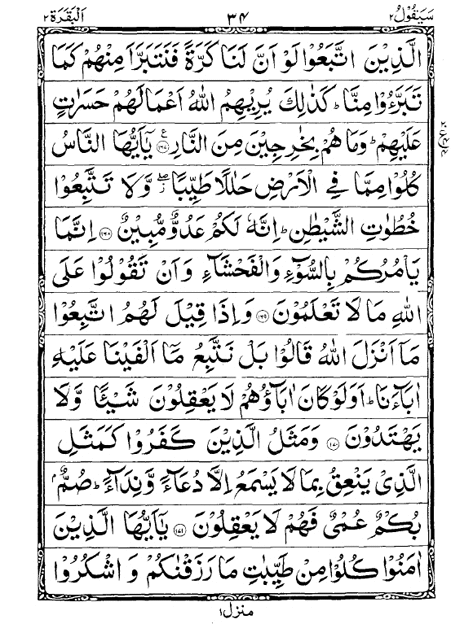 سَيَقُوْلُ ٢ ٣٤ اَلْبَقَرَة ٢
الَّذِيْنَ اتَّبَعُوْا لَوْ اَنَّ لَنَا كَرَّةً فَنَتَبَرَّاَ مِنْهُمْ كَمَا
تَبَرَّءُوْا مِنَّا ؕ كَذٰلِكَ يُرِيْهِمُ اللّٰهُ اَعْمَالَهُمْ حَسَرٰتٍ
عَلَيْهِمْ ؕ وَمَا هُمْ بِخٰرِجِيْنَ مِنَ النَّارِ ﴿١٦٧﴾ يٰۤاَيُّهَا النَّاسُ
كُلُوْا مِمَّا فِى الْاَرْضِ حَلٰلًا طَيِّبًا ۖ وَّلَا تَتَّبِعُوْا
خُطُوٰتِ الشَّيْطٰنِ ؕ اِنَّهٗ لَكُمْ عَدُوٌّ مُّبِيْنٌ ﴿١٦٨﴾ اِنَّمَا
يَاْمُرُكُمْ بِالسُّوْٓءِ وَالْفَحْشَآءِ وَاَنْ تَقُوْلُوْا عَلَى
اللّٰهِ مَا لَا تَعْلَمُوْنَ ﴿١٦٩﴾ وَاِذَا قِيْلَ لَهُمُ اتَّبِعُوْا
مَاۤ اَنْزَلَ اللّٰهُ قَالُوْا بَلْ نَتَّبِعُ مَاۤ اَلْفَيْنَا عَلَيْهِ
اٰبَآءَنَا ؕ اَوَلَوْ كَانَ اٰبَآؤُهُمْ لَا يَعْقِلُوْنَ شَيْئًا وَّلَا
يَهْتَدُوْنَ ﴿١٧٠﴾ وَمَثَلُ الَّذِيْنَ كَفَرُوْا كَمَثَلِ
الَّذِيْ يَنْعِقُ بِمَا لَا يَسْمَعُ اِلَّا دُعَآءً وَّنِدَآءً ؕ صُمٌّۢ
بُكْمٌ عُمْيٌ فَهُمْ لَا يَعْقِلُوْنَ ﴿١٧١﴾ يٰۤاَيُّهَا الَّذِيْنَ
اٰمَنُوْا كُلُوْا مِنْ طَيِّبٰتِ مَا رَزَقْنٰكُمْ وَ اشْكُرُوْا
منزل ١